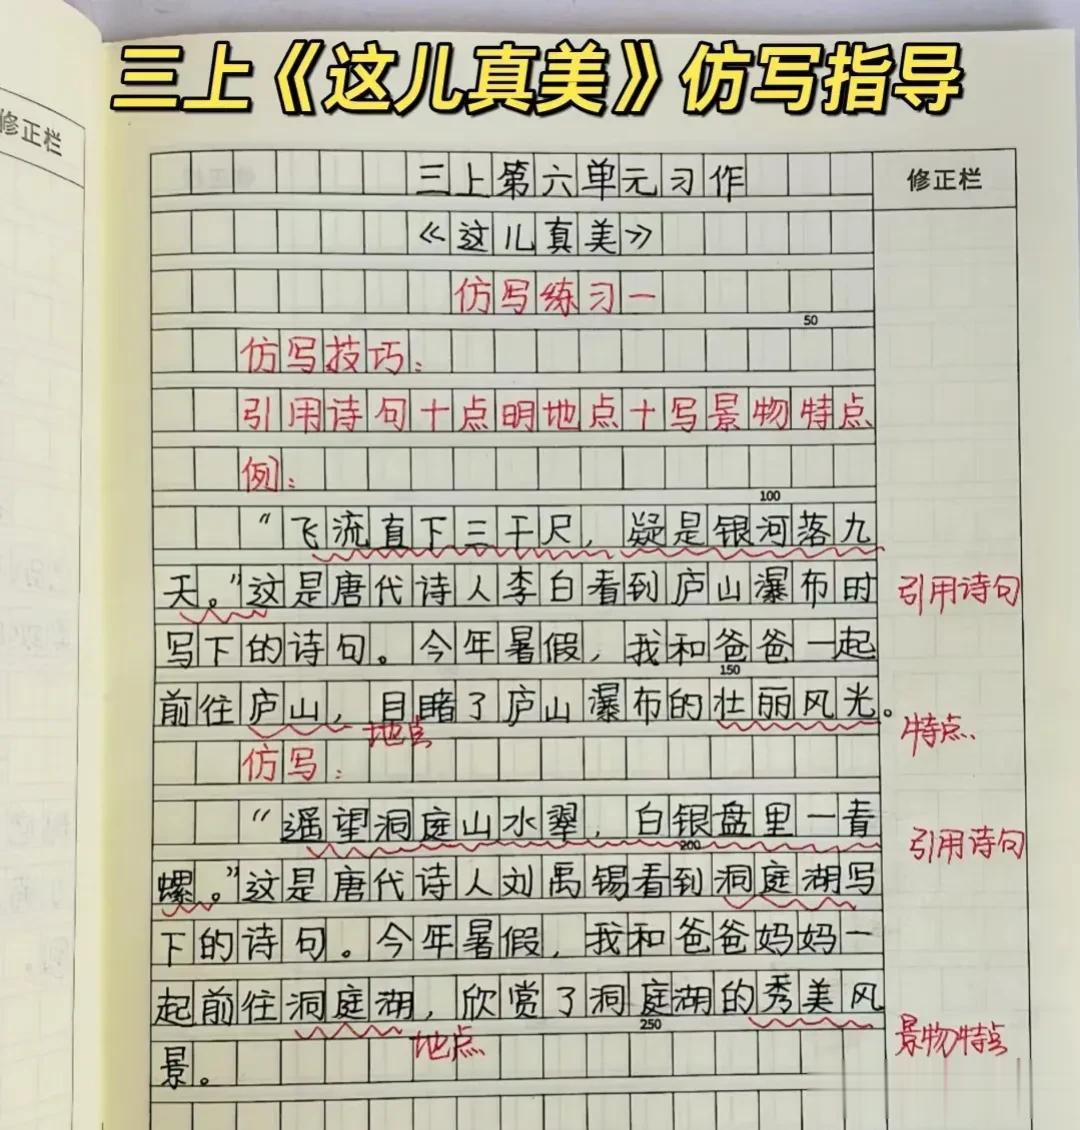 三上《这儿真美》仿写指导
修正栏
三上第六单元习作
修正栏
《这儿真美》
仿写练习一
50
仿写技巧：
引用诗句十点明地点十写景物特点
例：
100
“飞流直下三千尺，疑是银河落九
天。”这是唐代诗人李白看到庐山瀑布时
引用诗句
写下的诗句。今年暑假，我和爸爸一起
150
前往庐山，目睹了庐山瀑布的壮丽风光。
地点
特点.
仿写：
“遥望洞庭山水翠，白银盘里一青
200
引用诗句
螺。”这是唐代诗人刘禹锡看到洞庭湖写
下的诗句。今年暑假，我和爸爸妈妈一
起前往洞庭湖，欣赏了洞庭湖的秀美风
250
地点
景物特点
景。